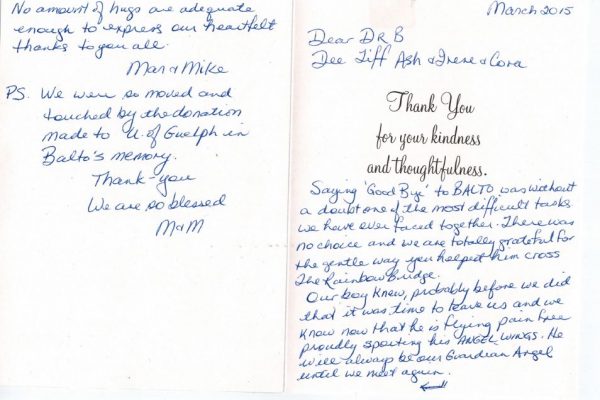 March 2015
Dear Dr B
Dee Tiff Ash & Irene & Cora
Thank You
for your kindness
and thoughtfulness.
Saying 'Good Bye' to BALTO was without
a doubt one of the most difficult tasks
we have ever faced together. There was
no choice and we are totally grateful for
the gentle way you helped him cross
The Rainbow Bridge.
Our boy knew, probably before we did
that it was time to leave us and we
know now that he is flying pain free
proudly sporting his ANGEL WINGS. He
will always be our Guardian Angel
until we meet again.
No amount of hugs are adequate
enough to express our heartfelt
thanks to you all.
Mar & Mike
PS. We were so moved and
touched by the donation
made to U. of Guelph in
Balto's memory.
Thank-you
We are so blessed
M&M